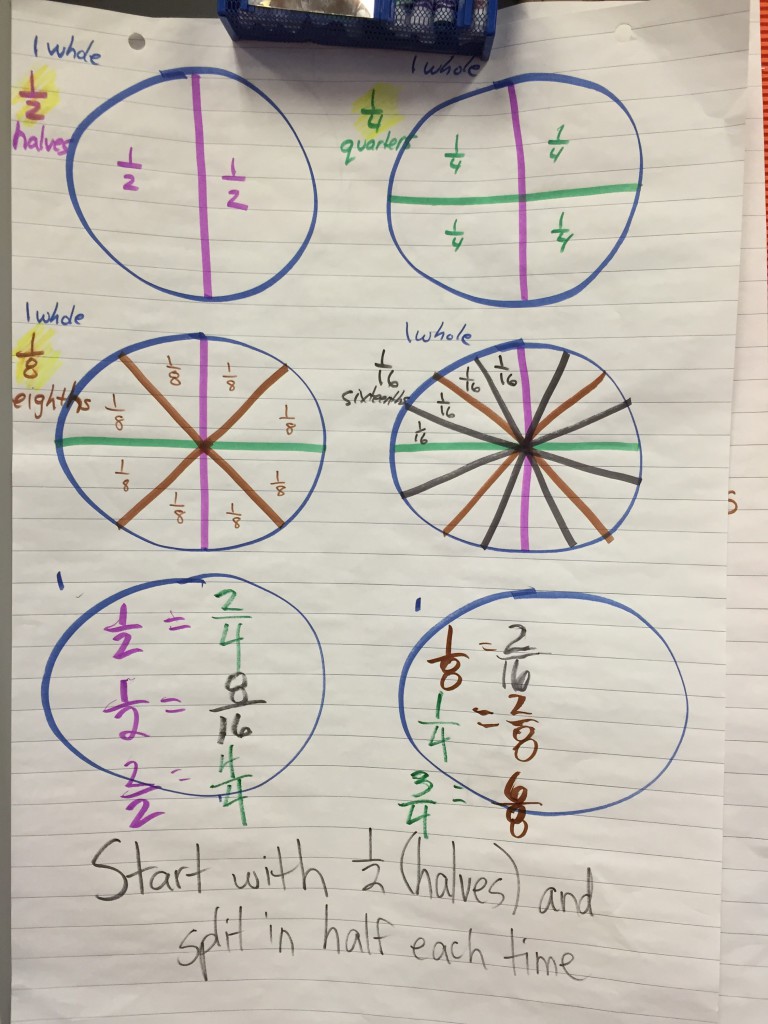 1 whole
1/2
halves
1/2 1/2
1 whole
1/4
quarters
1/4 1/4
1/4 1/4
1 whole
1/8
eighths
1/8 1/8
1/8 1/8
1/8 1/8
1/8 1/8
1 whole
1/16
sixteenths
1/16 1/16
1/16
1/16
1
1/2 = 2/4
1/2 = 8/16
2/2 = 4/4
1
1/8 = 2/16
1/4 = 2/8
3/4 = 6/8
Start with 1/2 (halves) and
split in half each time